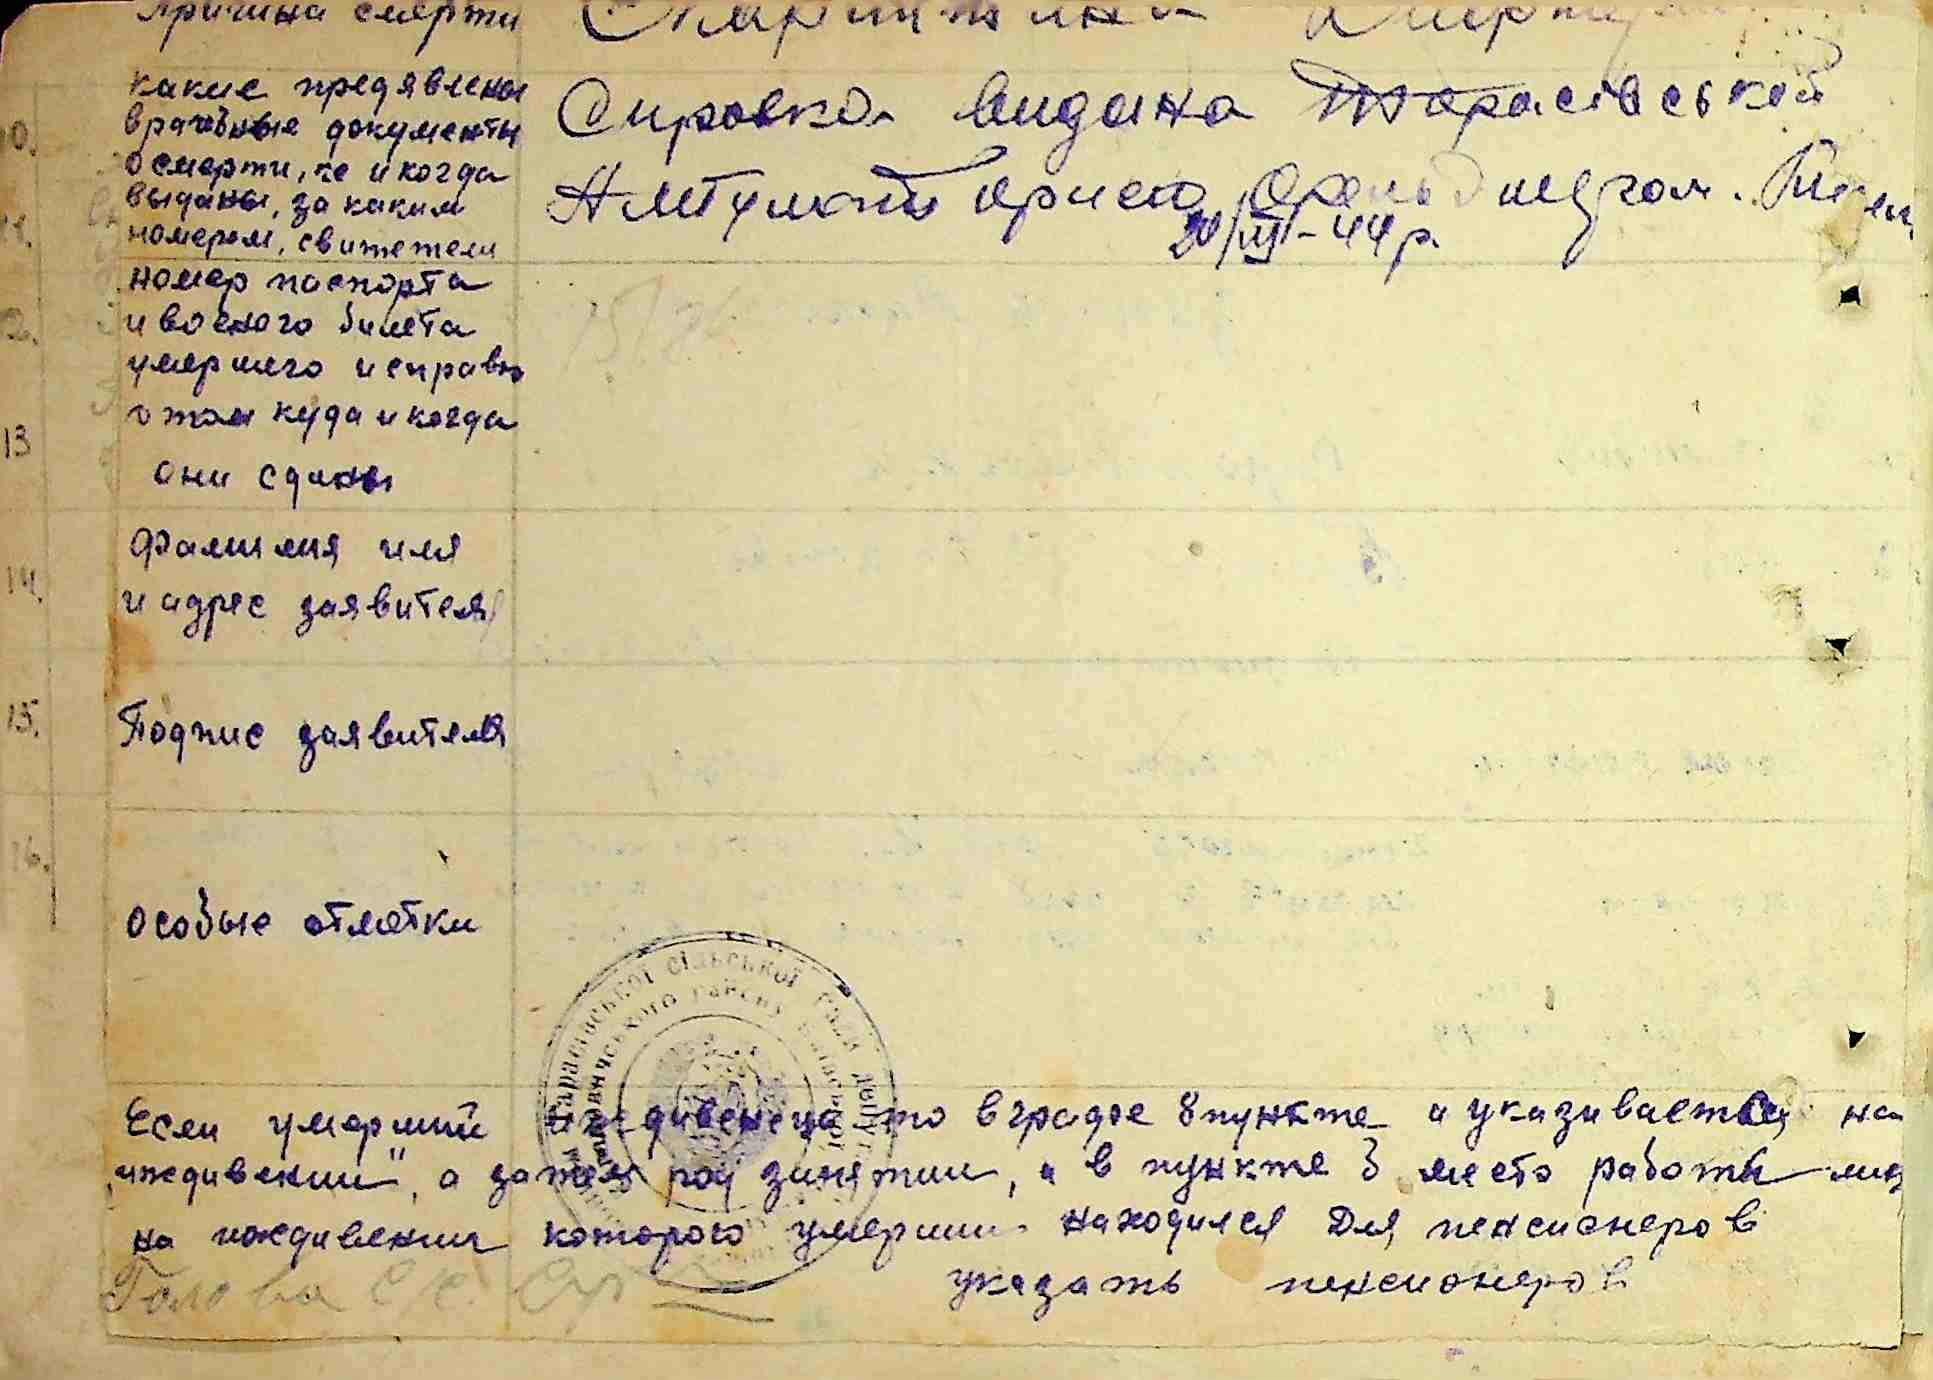 Причина смерти
какие предявлены
10. врачебные документы
о смерти, ке и когда
выданы, за каким
11. номером, свитетели
Справка видана Тарасівской
20/III-44 р.
номер паспорта
12. и военого билета
умершего и справка
о том куда и когда
13 они сданы
14. Фамилия имя
и адрес заявителя
15. Подпис заявителя
16. особые отметки
Тарасівської сільської Ради депу
району Київсь
Если умерший иждивенец то в графе 8 пункте а указивается на
иждивении", а затем род занятии, а в пункте б место работы лиц
на иждивении которого умерший находился Для пенсионеров
указать пенсионеров
Голова с/с.